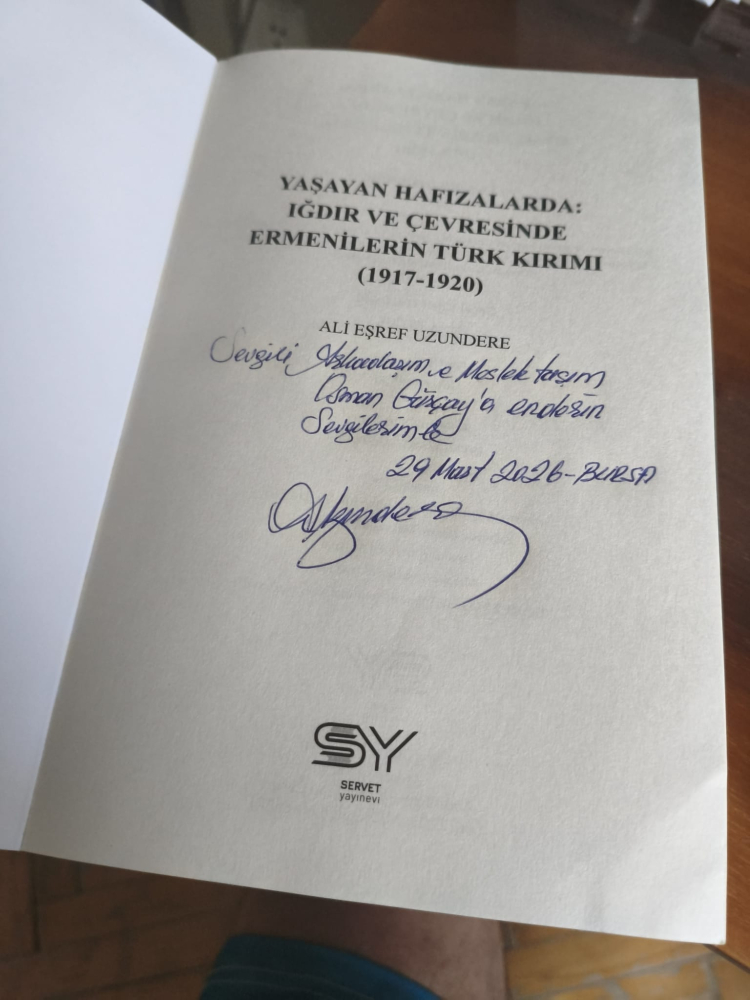 YAŞAYAN HAFIZALARDA:
IĞDIR VE ÇEVRESİNDE
ERMENİLERİN TÜRK KIRIMI
(1917-1920)
ALİ EŞREF UZUNDERE
Sevgili Arkadaşım ve Meslektaşım
Osman Gürçay'a enderin
Sevgilerimle
29 Mart 2026-BURSA
SY
SERVET
yayınevi